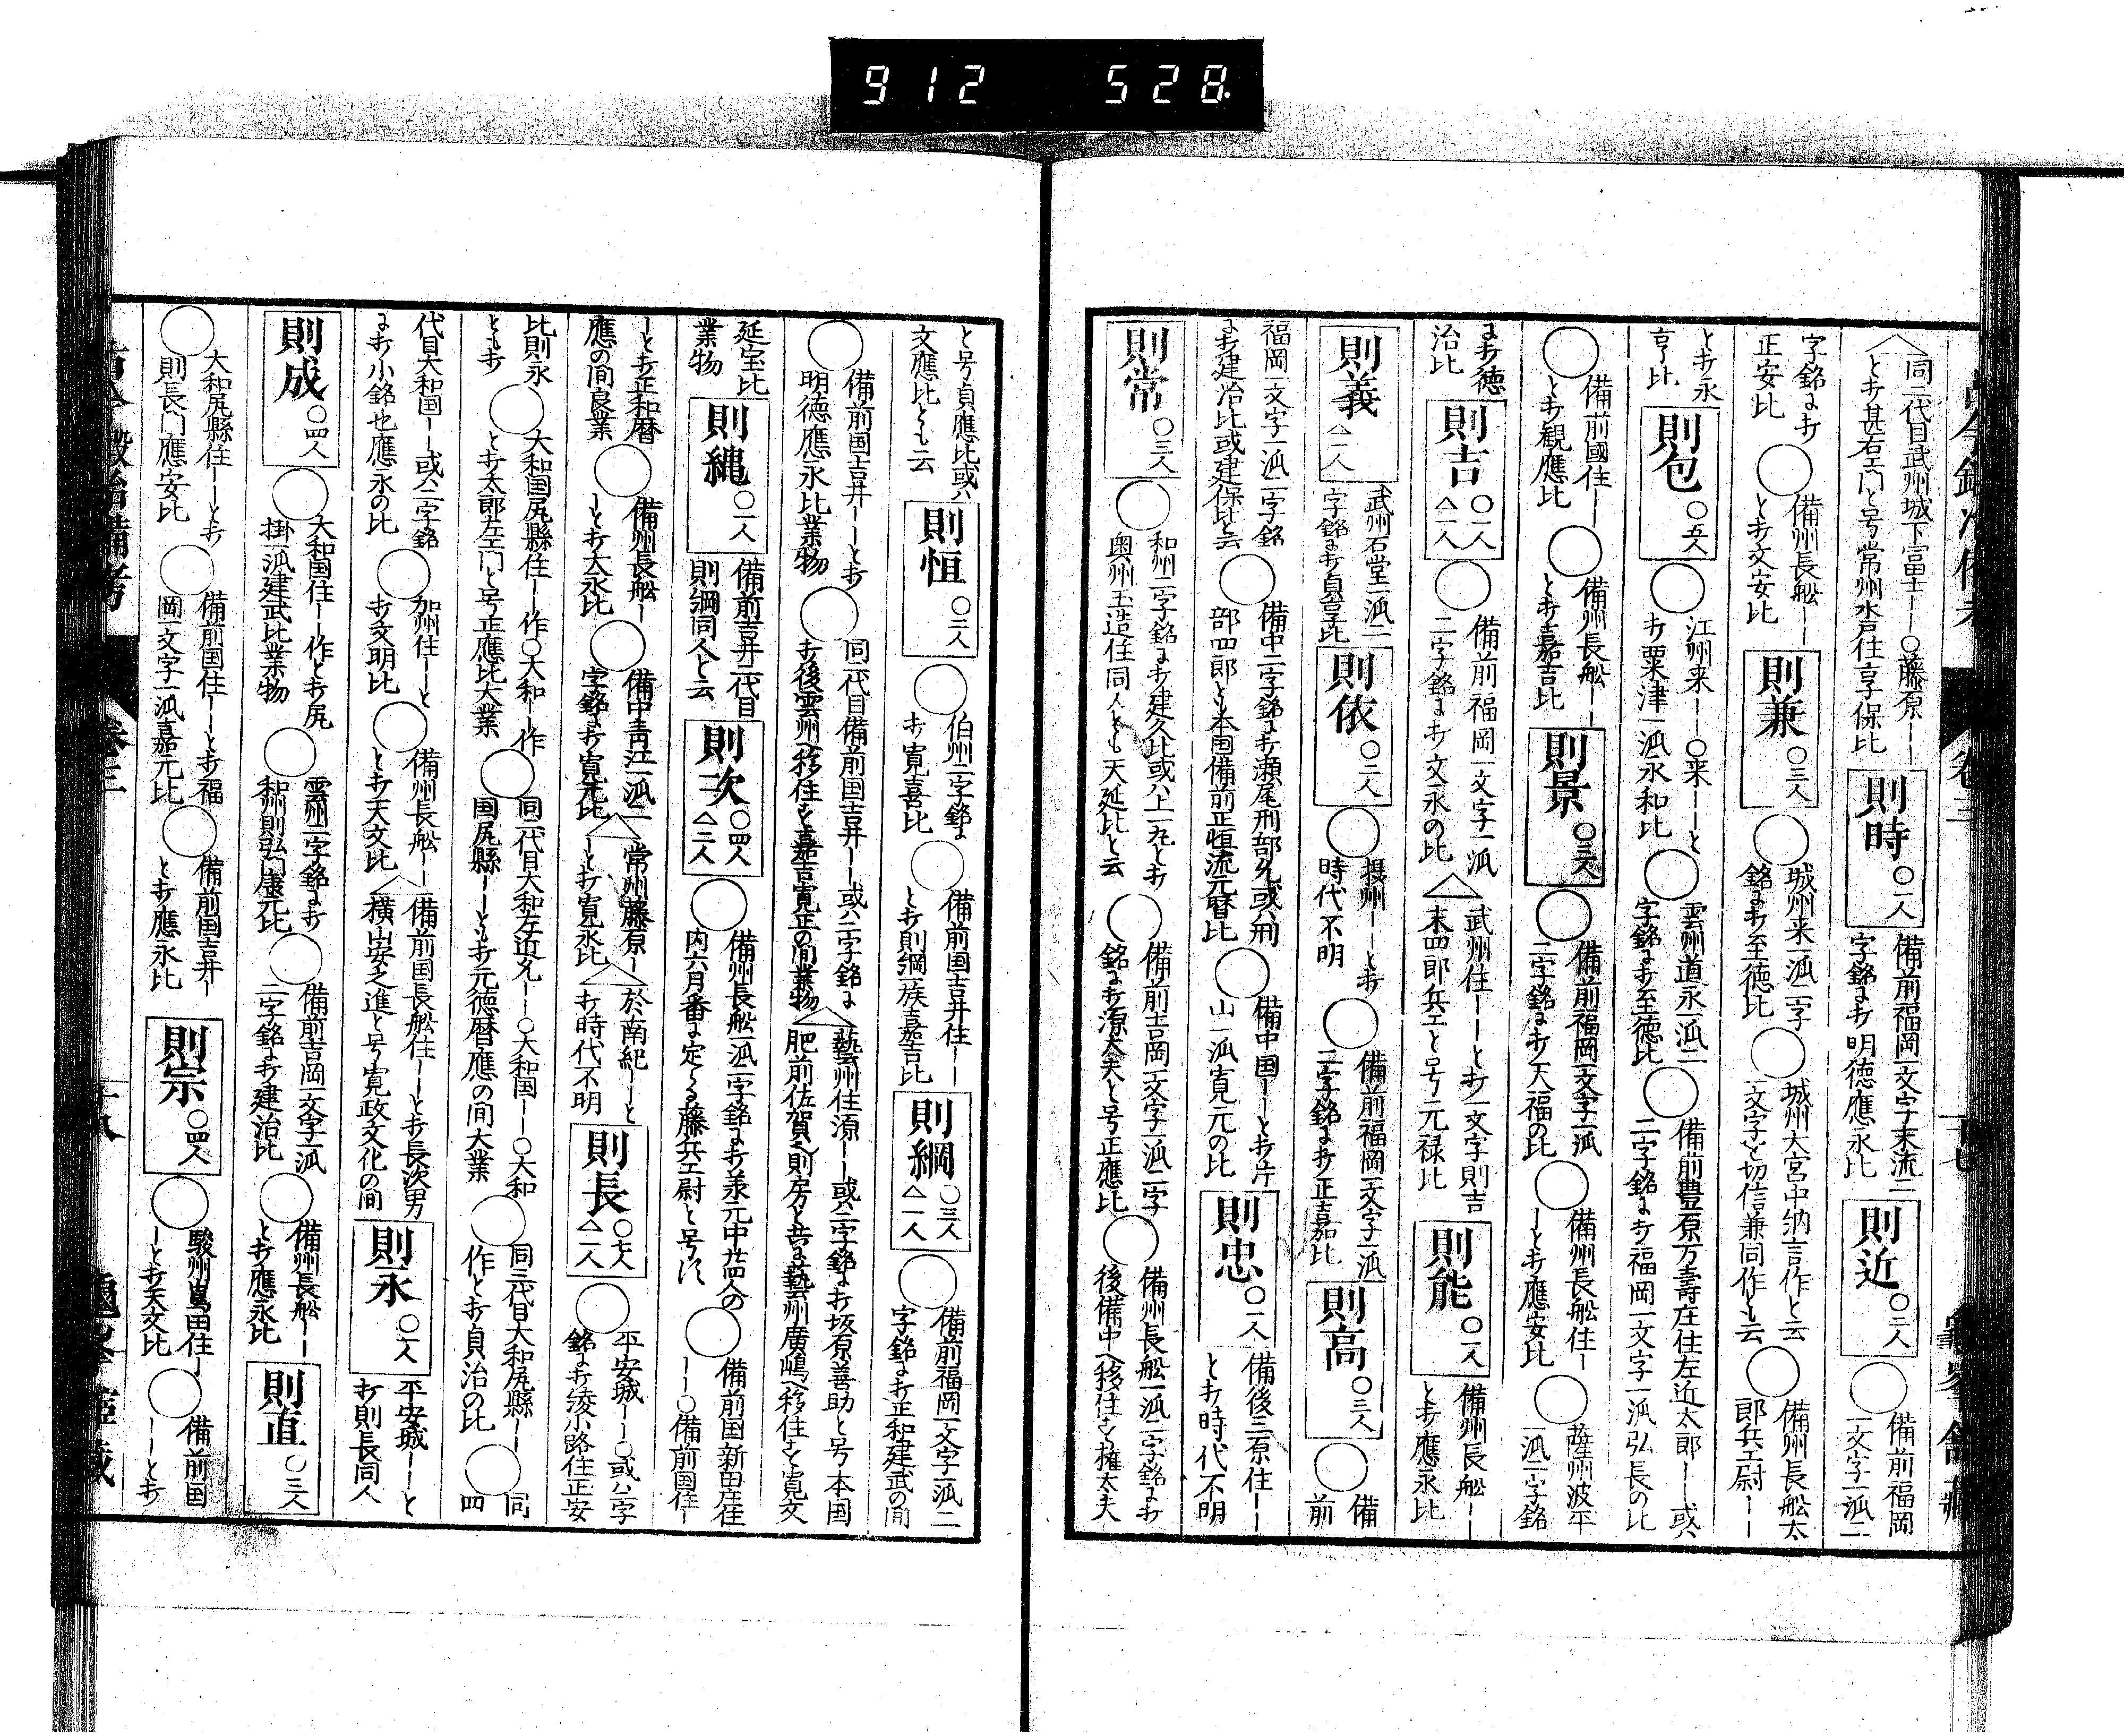 912 528
同二代目武州城下冨士――○藤原――
とヰ甚右エ門と号常州水戸住享保比
則時 ○一人
備前福岡一文字末流二
字銘にヰ明徳應永比
則近 ○二人
備前福岡
一文字一派二
字銘にヰ
正安比
備州長舩――
とヰ文安比
則兼 ○三人
城州来一派二字
銘にヰ至徳比
城州大宮中納言作と云
一文字と切信兼同作とも云
備州長舩太
郎兵エ尉――
とヰ永
享比
則包 ○五人
江州来――○来――と
ヰ粟津一派永和比
雲州道永一派二
字銘にヰ至徳比
備前豊原万壽庄住左近太郎――或ハ
二字銘にヰ福岡一文字一派弘長の比
備前國住――
とヰ観應比
備州長舩――
とヰ嘉吉比
則景 ○三人
備前福岡一文字一派
二字銘にヰ天福の比
備州長舩住―
―とヰ應安比
薩州波平
一派二字銘
にヰ徳
治比
則吉 ○一人 △一人
備前福岡一文字一派
二字銘にヰ文永の比
武州住――とヰ一文字則吉
末四郎兵エと号元禄比
則能 ○一人
備州長舩――
とヰ應永比
則義 △一人
武州石堂一派二
字銘にヰ貞享比
則依 ○二人
摂州――とヰ
時代不明
備前福岡一文字一派
二字銘にヰ正嘉比
則高 ○三人
備
前
福岡一文字一派二字銘
にヰ建治比或建保比と云
備中二字銘にヰ瀬尾刑部允或ハ刑
部四郎とも本国備前正恒流元暦比
備中国――とヰ片
山一派寛元の比
則忠 ○一人
備後三原住――
とヰ時代不明
則常 ○三人
和州二字銘にヰ建久比或ハ上一丸とヰ
奥州玉造住同人とも天延比と云
備前吉岡一文字一派二字
銘にヰ源大夫と号正應比
備州長舩一派二字銘にヰ
後備中へ移住す擁太夫
と号貞應比或ハ
文應比とも云
則恒 ○二人
伯州二字銘に
ヰ寛喜比
備前国吉井住――
とヰ則綱一族嘉吉比
則綱 ○三人 △一人
備前福岡一文字一派二
字銘にヰ正和建武の間
備前国吉井――とヰ
明徳應永比業物
同二代目備前国吉井――或ハ二字銘に
ヰ後雲州へ移住す嘉吉寛正の間業物
藝州住源――或ハ二字銘にヰ坂原善助と号本国
肥前佐賀則房と共に藝州廣嶋へ移住す寛文
延宝比
業物
則縄 ○一人
備前吉井二代目
則綱同人と云
則次 ○四人 △三人
備州長舩一派二字銘にヰ兼元中廿四人の
内六月番に定る藤兵エ尉と号ス
備前国新田庄住
――○備前国住―
―とヰ正和暦
應の間良業
備州長舩―
―とヰ大永比
備中青江一派二
字銘にヰ寛元比
常州藤原―
―とヰ寛永比
於南紀――と
ヰ時代不明
則長 ○七人 △一人
平安城――○或ハ二字
銘にヰ綾小路住正安
比則永
ともヰ
大和国尻縣住――作○大和――作
とヰ太郎左エ門と号正應比大業
同二代目大和左近允――○大和国――○大和
国尻縣――ともヰ元徳暦應の間大業
同三代目大和尻縣――
作とヰ貞治の比
同
四
代目大和国――或ハ二字銘
にヰ小銘也應永の比
加州住――と
ヰ文明比
備州長舩――
とヰ天文比
備前国長舩住――とヰ長次男
横山安之進と号寛政文化の間
則永 ○一人
平安城――と
ヰ則長同人
則成 ○四人
大和国住――作とヰ尻
掛一派建武比業物
雲州二字銘にヰ
和州則弘門康元比
備前吉岡一文字一派
二字銘にヰ建治比
備州長舩――
とヰ應永比
則直 ○三人
大和尻縣住――とヰ
則長門應安比
備前国住――とヰ福
岡一文字一派嘉元比
備前国吉井――
とヰ應永比
則宗 ○四人
駿州嶌田住―
―とヰ天文比
備前国
――とヰ